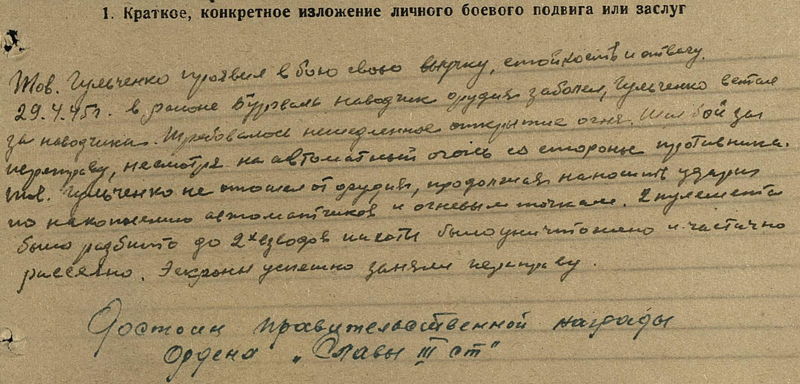 1. Краткое, конкретное изложение личного боевого подвига или заслуг
Тов. Гульченко проявил в бою свою выучку, стойкость и отвагу.
29.4.45г. в районе наводчик орудия заболел, Гульченко встал
за наводчика. Требовалось немедленное открытие огня. Шел бой за
переправу, несмотря на автоматный огонь со стороны противника.
Тов. Гульченко не отошел от орудия, продолжая наносить удары
по скоплению автоматчиков и огневым точкам. 2 пулемета
было разбито до 2х взводов пехоты было уничтожено и частично
рассеяно. успешно заняли переправу.
Достоин правительственной награды
Ордена „Славы III ст"